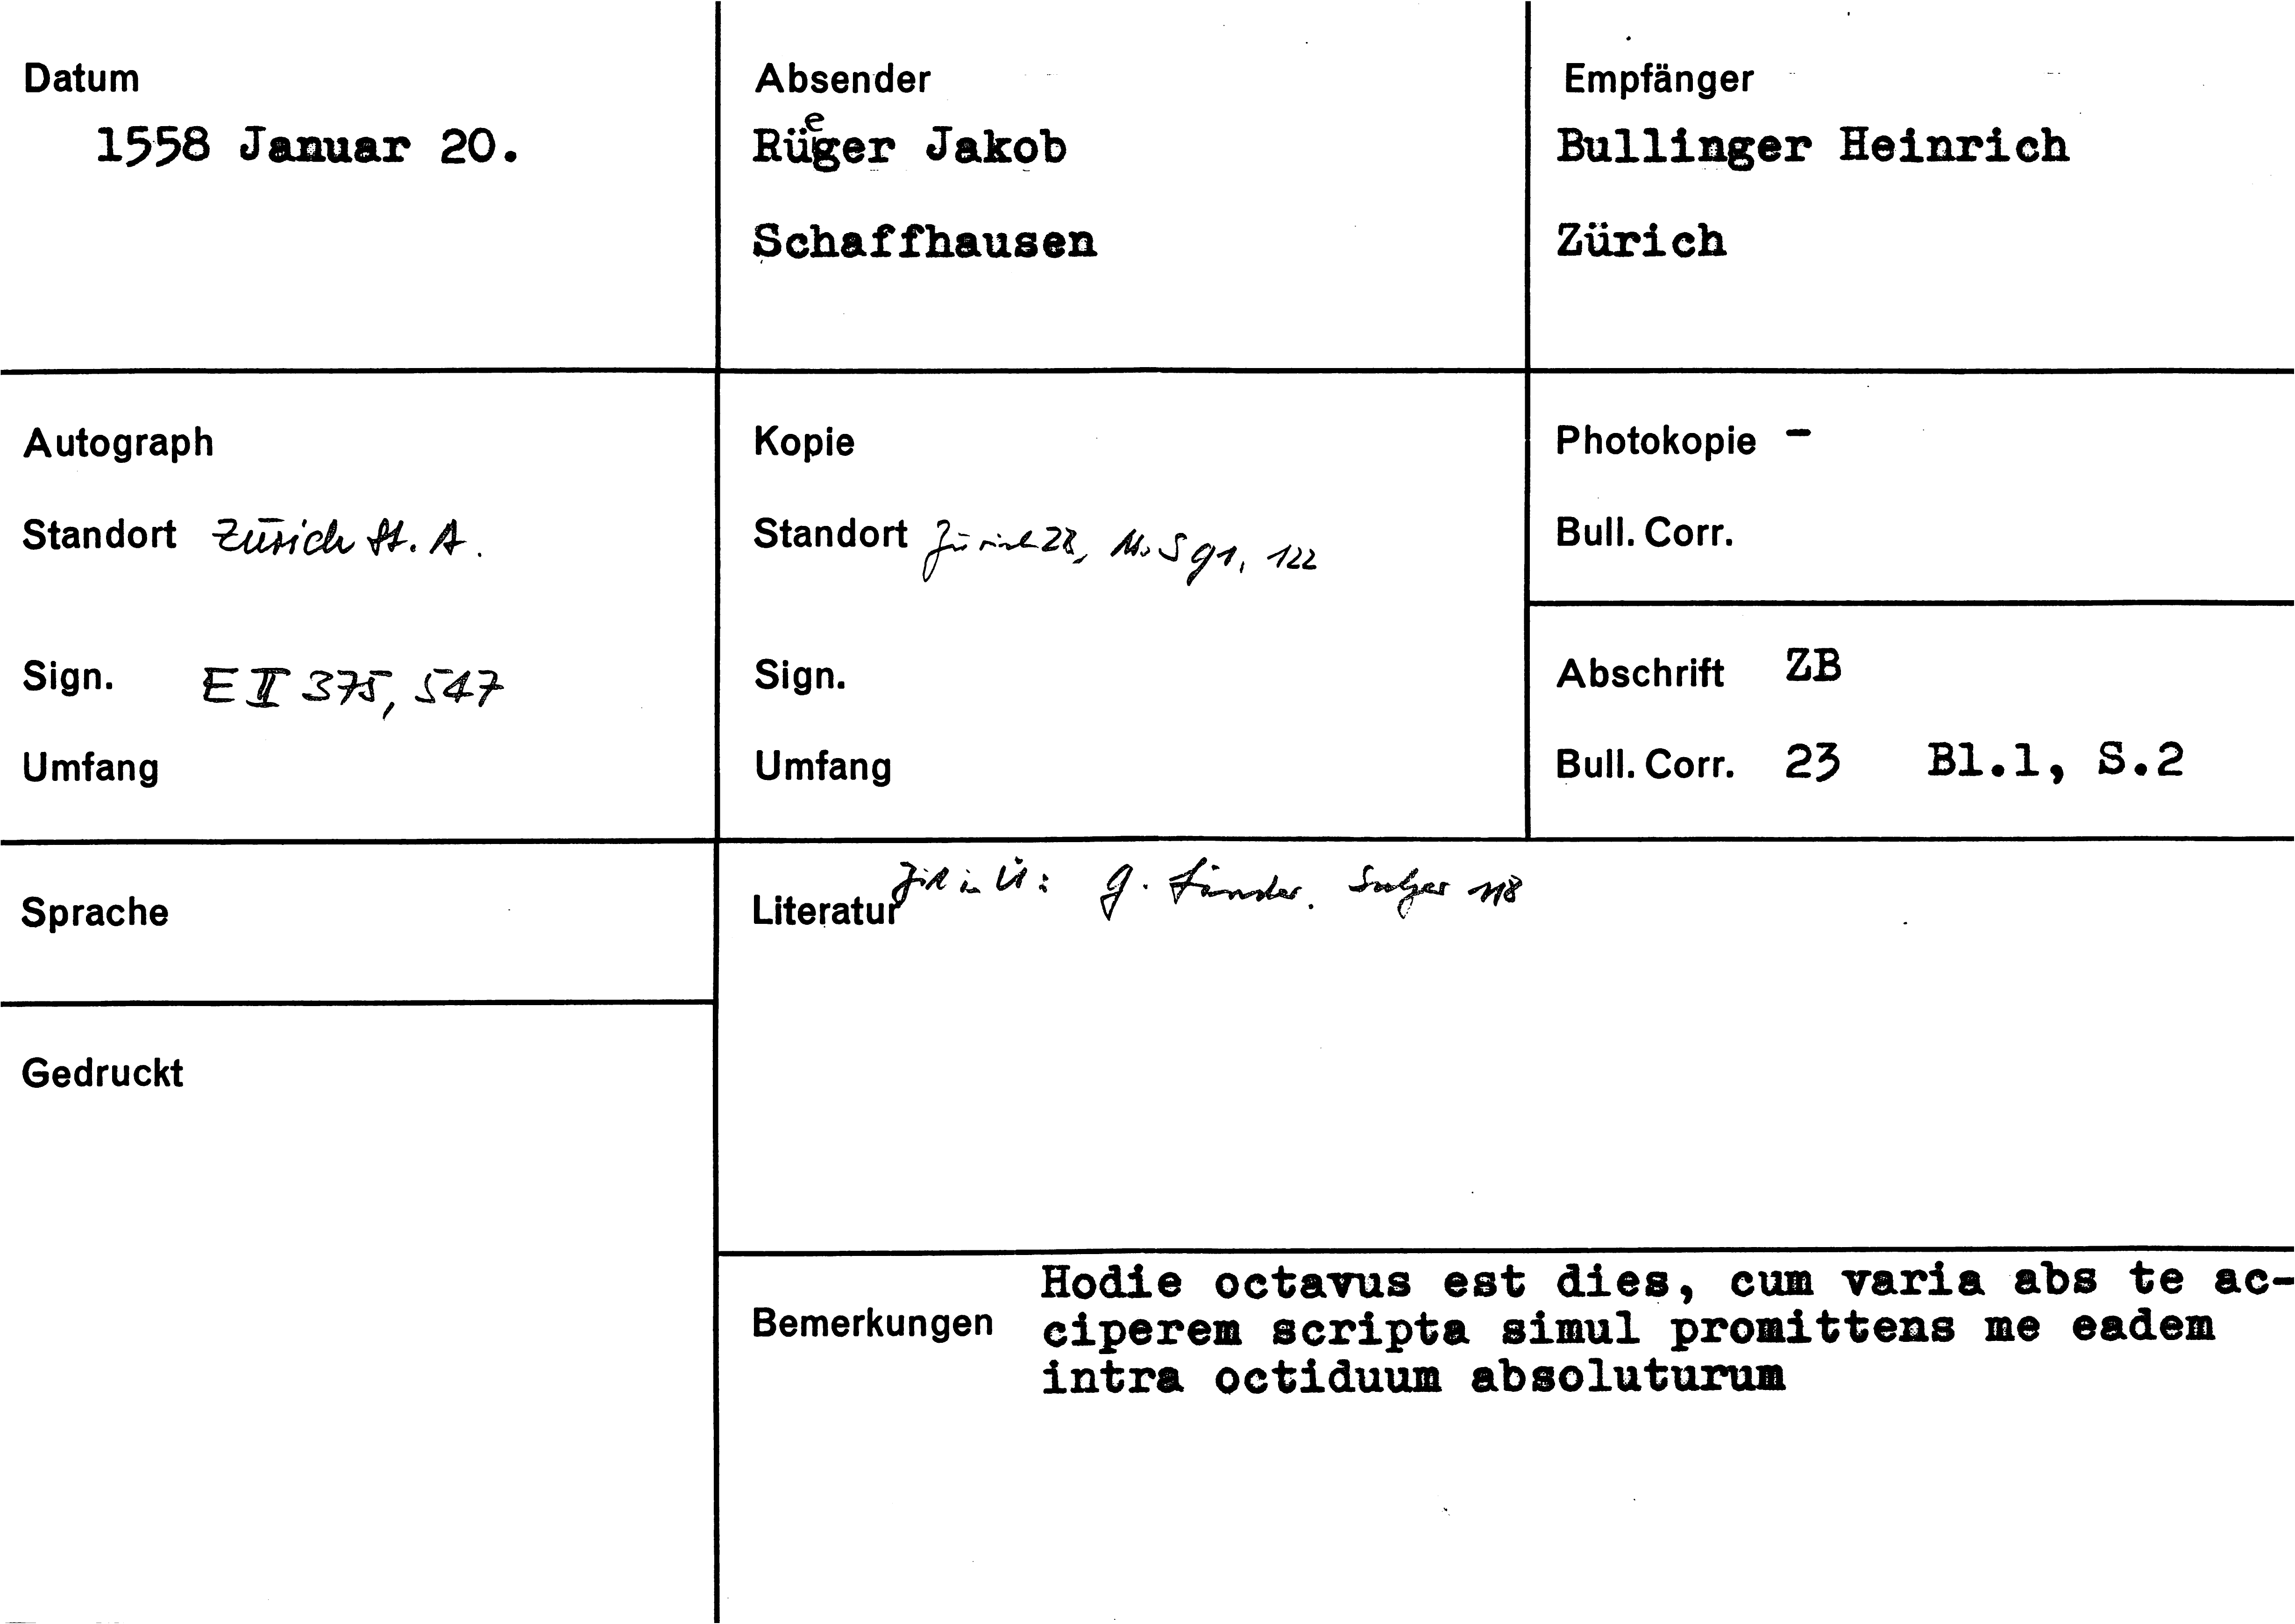 Datum
1558 Januar 20.
Absender
Rüeger Jakob
Schaffhausen
Empfänger
Bullinger Heinrich
Zürich
Autograph
Standort Zürich St. A.
Sign. E II 375, 547
Umfang
Kopie
Standort Zürich ZB, Ms S 91, 122
Sign.
Umfang
Photokopie -
Bull. Corr.
Abschrift ZB
Bull. Corr. 23 Bl.1, S.2
Sprache
Literatur G. Linder. Sulzer 118
Gedruckt
Bemerkungen
Hodie octavus est dies, cum varia abs te ac-
ciperem scripta simul promittens me eadem
intra octiduum absoluturum